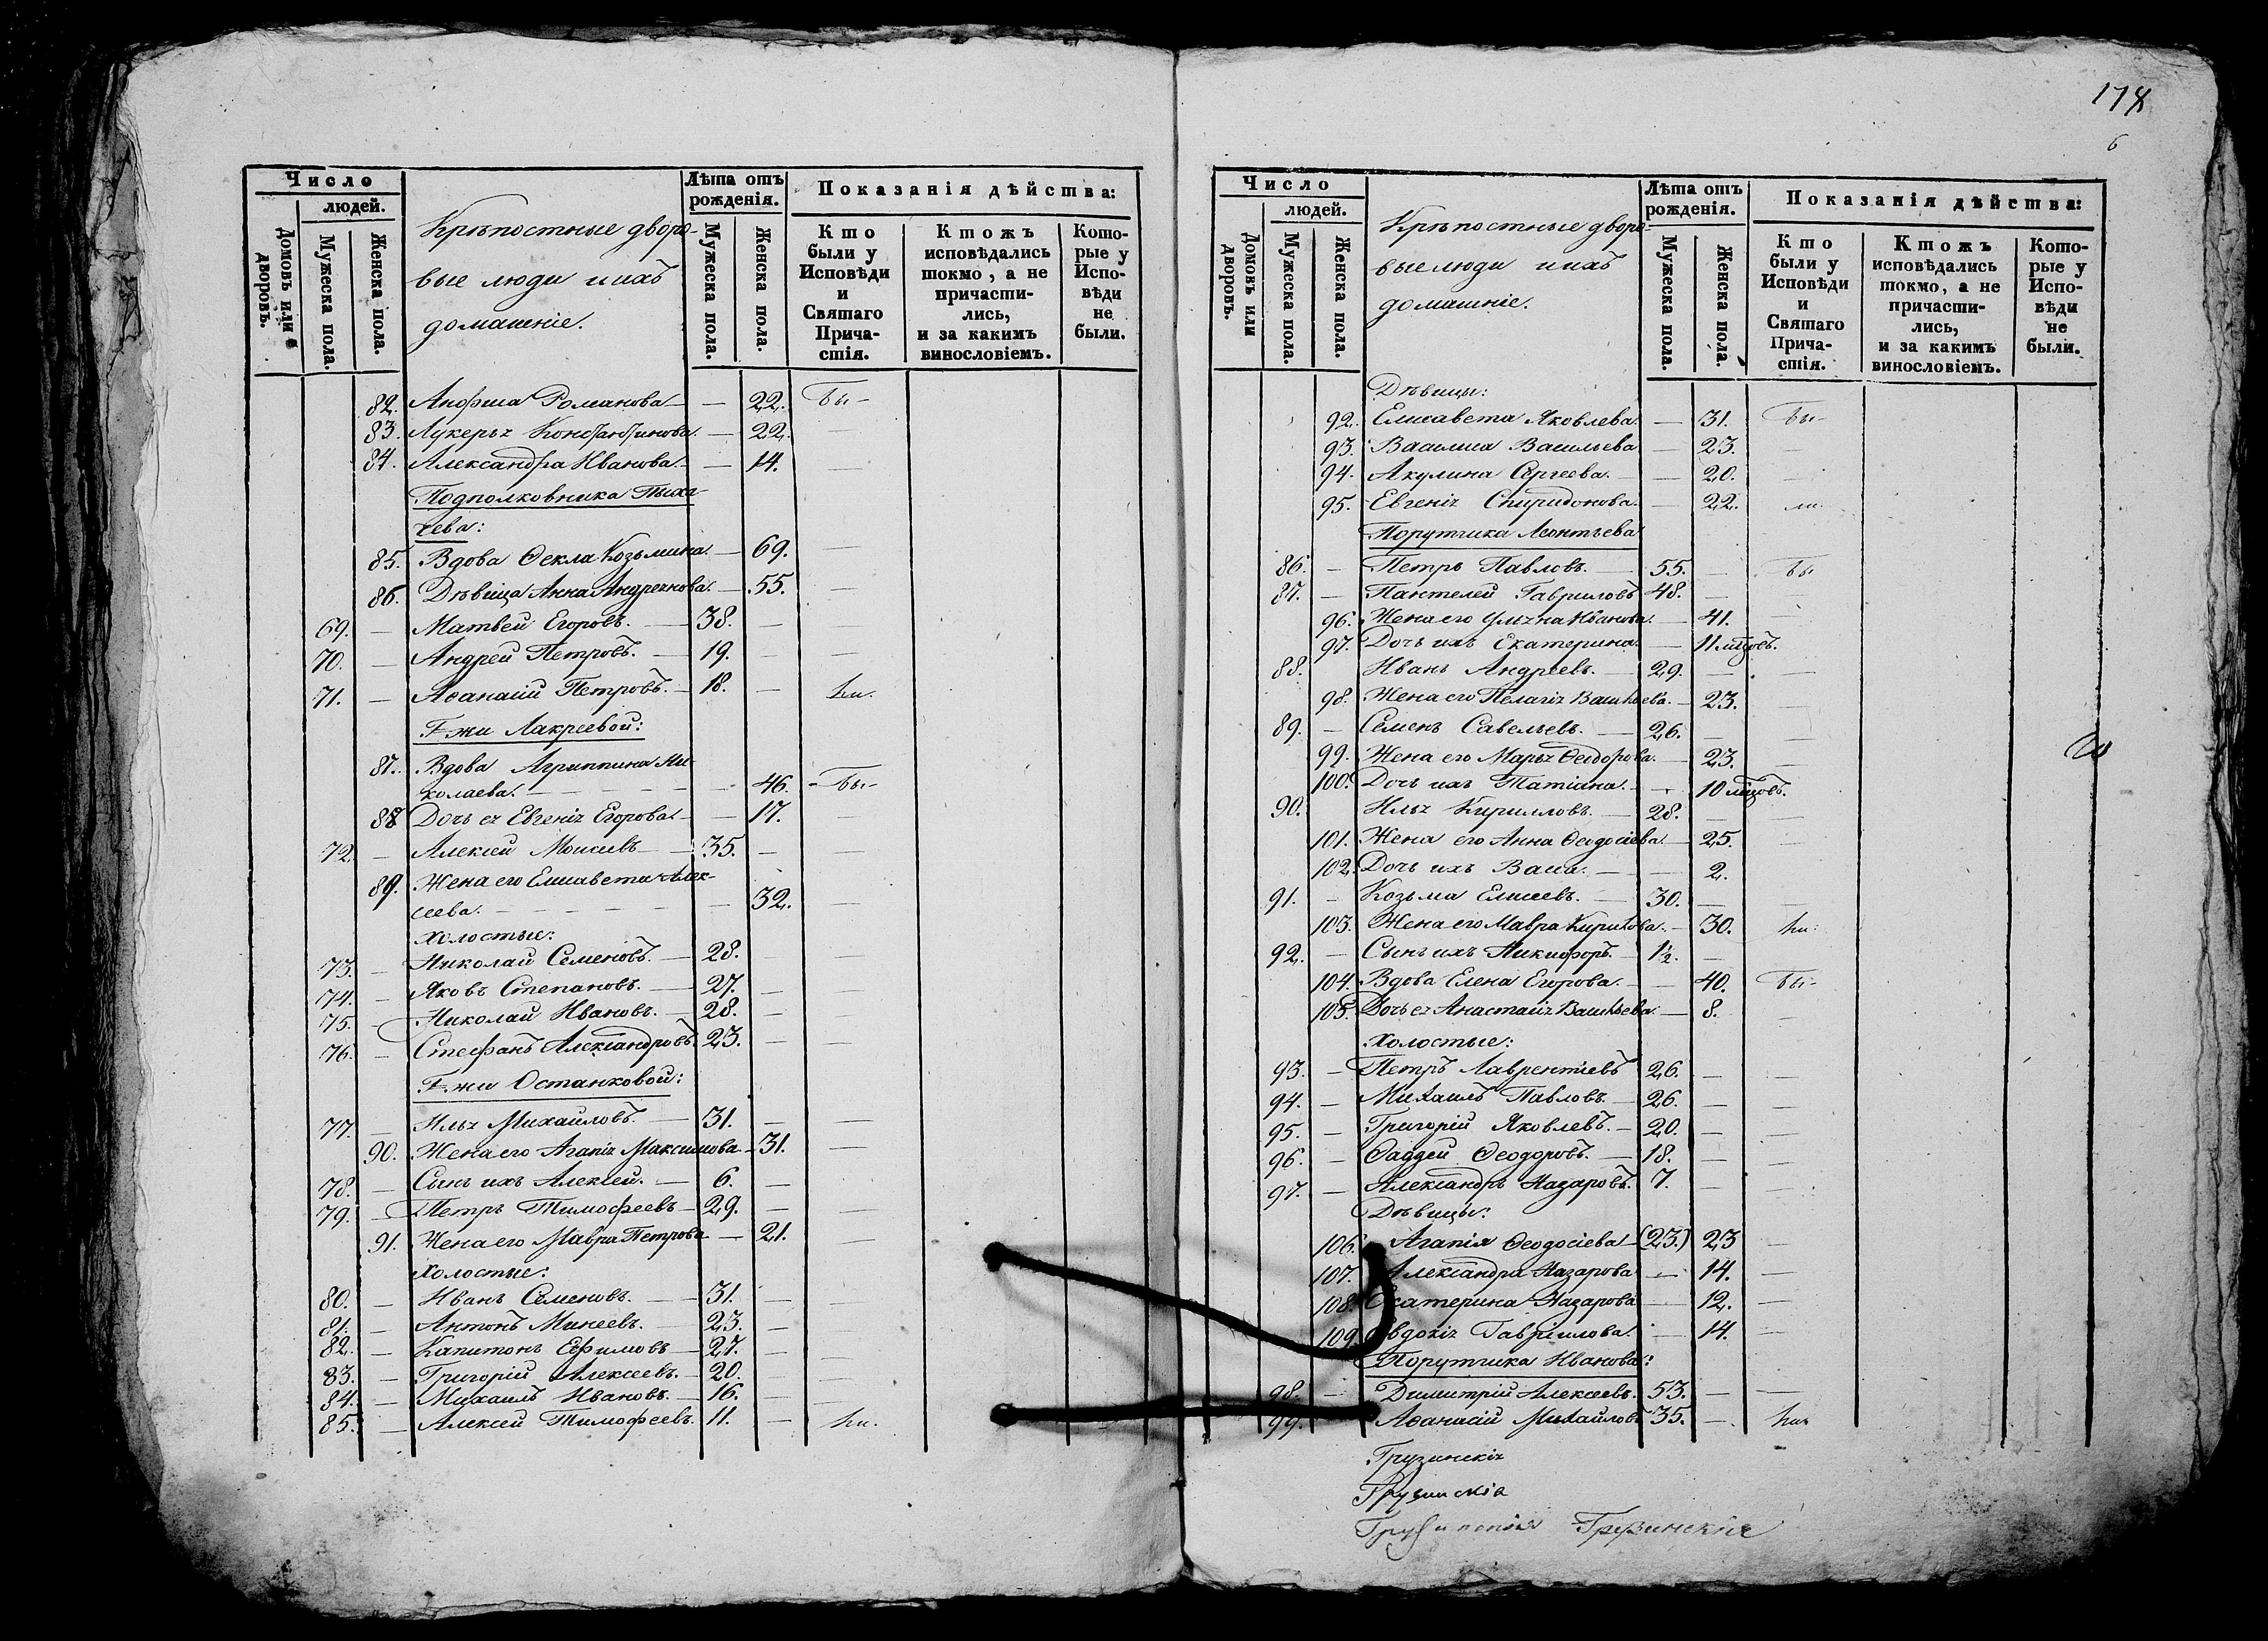 178
6
Число
людей.
Домовъ или дворовъ.
Мужеска пола.
Женска пола.
Крѣпостные дворо-
вые люди и ихъ
домашніе.
Лѣта отъ рожденія.
Мужеска пола.
Женска пола.
Показанія дѣйства:
Кто были у Исповѣди и Святаго Прича-стія.
Ктожъ исповѣдались токмо, а не причасти-лись, и за какимъ винословіемъ.
Кото-рые у Испо-вѣди не были.
82. Анфиса Романова — — 22. бы-
83. Лукерья Константинова. — 22. —
84. Александра Иванова. — 14. —
Подполковника Пыха-
чева:
85. Вдова Ѳекла Козьмина. — 69. —
86. Дѣвица Анна Андреянова. — 55. —
69. — Матвей Егоровъ. — 38. — —
70. — Андрей Петровъ. — 19. — —
71. — Аѳанасій Петровъ. — 18. — ли.
Г-жи Лакреевой:
87. Вдова Агриппина Ни-
колаева. — 46. - бы-
88 Дочь ея Евгенія Егорова. — 17. —
72. — Алексей Моисеевъ — 35. — —
89. Жена его Елисавета Алек-
сеева. — 32. —
Холостые:
73. — Николай Семеновъ. — 28. —
74. — Яковъ Степановъ. — 27. — —
75. — Николай Ивановъ. — 28. — —
76. — Стефанъ Александровъ. 23. — —
Г-жи Останковой:
77. — Илья Михайловъ. — 31. — —
90. Жена его Агапія Максимова. — 31. —
78. — Сынъ ихъ Алексей. — 6. — —
79. — Петръ Тимофеевъ — 29. — —
91. Жена его Мавра Петрова — 21. —
Холостые:
80. — Иванъ Семеновъ. — 31. — —
81. — Антонъ Минеевъ. — 23. — —
82. — Капитонъ Ефимовъ — 27. — —
83. — Григорій Алексеевъ. — 20. — —
84. — Михаилъ Ивановъ. — 16. — —
85. — Алексей Тимофеевъ. 11. — ли.
Число
людей.
Домовъ или дворовъ.
Мужеска пола.
Женска пола.
Крѣпостные дворо-
вые люди и ихъ
домашніе.
Лѣта отъ рожденія.
Мужеска пола.
Женска пола.
Показанія дѣйства:
Кто были у Исповѣди и Святаго Прича-стія.
Ктожъ исповѣдались токмо, а не причасти-лись, и за какимъ винословіемъ.
Кото-рые у Испо-вѣди не были.
Дѣвицы:
92. Елисавета Яковлева. — 31. бы-
93. Василиса Васильева — 23. —
94. Акулина Сергеева. — 20. —
95. Евгенія Спиридонова. — 22. ли.
Порутчика Леонтьева
86. — Петръ Павловъ. — 55. — бы
87. — Пантелей Гавриловъ 48. —
96. Жена его Ульяна Иванова. — 41. —
97. Дочь ихъ Екатерина. — 11 мцовъ.
88. Иванъ Андреевъ. — 29. — —
98. Жена его Пелагія Васильева. — 23. —
89. — Семенъ Савельевъ. — 26. — —
99. Жена его Марья Ѳеодорова. — 23. —
100. Дочь ихъ Татіана. — 10 мцовъ.
90. Илья Кирилловъ. — 28. — —
101. Жена его Анна Ѳеодосіева — 25. —
102. Дочь ихъ Васса. — — 2.
91. — Козьма Елисеевъ. — 30. — —
103. Жена его Мавра Кирилова. — 30. ли:
92. — Сынъ ихъ Никифоръ. — 1½. —
104. Вдова Елена Егорова. — 40. бы-
105. Дочь ея Анастасія Васильева. — 8. —
Холостые:
93. — Петръ Лаврентіевъ 26. — —
94. — Михаилъ Павловъ. — 26. — —
95. — Григорій Яковлевъ. — 20. — —
96. — Ѳаддей Ѳеодоровъ. — 18. — —
97. — Александръ Назаровъ. 7. — —
Дѣвицы:
106. Агапія Ѳеодосіева (23.) 23 —
107. Александра Назарова — 14. —
108. Екатерина Назарова — 12. —
109. Евдокія Гавриилова. — 14. —
Порутчика Иванова:
98. — Димитрій Алексеевъ. 53. — —
99. Аѳанасій Михайловъ 35. — ли
Грузинскія
Грузинскія
Грузинскія Грузинскія